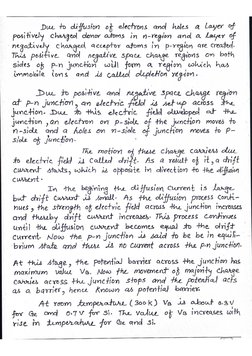 Due to diffusion of electrons and holes a layer of
positively charged donor atoms in n-region and a layer of
negatively charged acceptor atoms in p-region are created.
This positive and negative space charge regions on both
sides of p-n junction will form a region which has
immobile ions and is called depletion region.
Due to positive and negative space charge region
at p-n junction, an electric field is set up across the
junction. Due to this electric field developed at the
junction, an electron on p-side of the junction moves to
n-side and a holes on n-side of junction moves to p-
side of junction.
The motion of these charge carriers due
to electric field is called drift. As a result of it, a drift
current starts, which is opposite in direction to the diffusion
current.
In the begining the diffusion current is large
but drift current is small. As the diffusion process conti-
nues, the strength of electric field across the junction increases
and thereby drift current increases. This process continues
until the diffusion current becomes equal to the drift
current. Now the p-n junction is said to be be in equili-
brium state and there is no current across the p-n junction.
At this stage, the potential barrier across the junction has
maximum value V₀. Now the movement of majority charge
carries across the junction stops and the potential acts
as a barrier, hence known as potential barrier.
At room temperature (300k) V₀ is about 0.3V
for Ge and 0.7V for Si. The value of V₀ increases with
rise in temperature for Ge and Si.